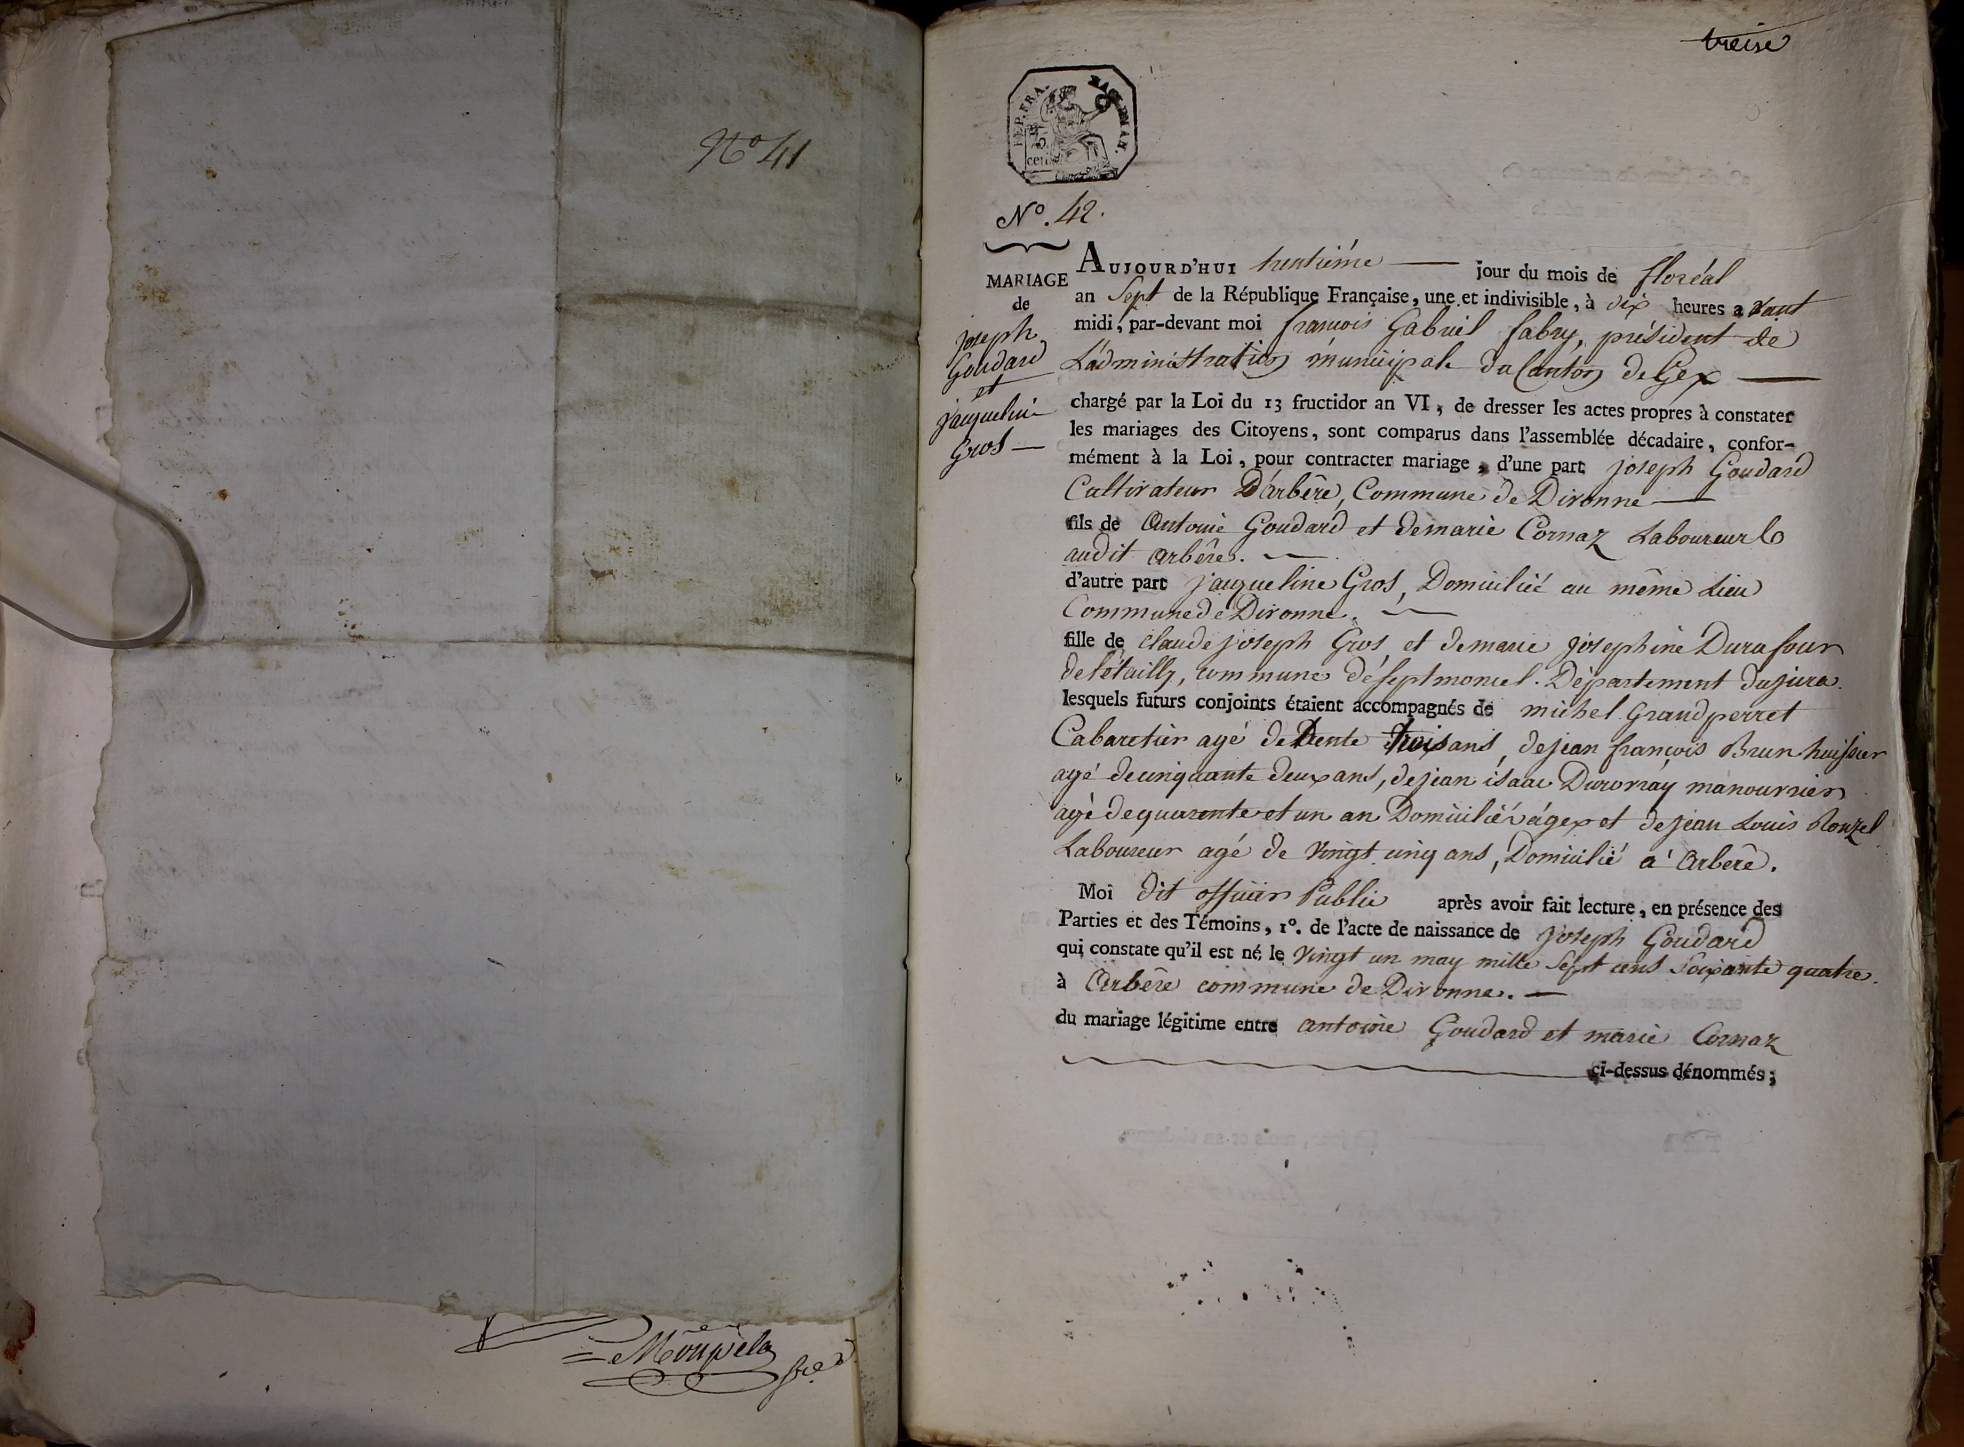 No 41
Moupela
treise
REP. FRA.
cen
No. 42.
MARIAGE
de
joseph
Goudard
et
jaqueline
Gros
AUJOURD'HUI trentième jour du mois de floréal
an sept de la République Française, une et indivisible, à dix heures avant
midi, par-devant moi francois Gabriel fabry, président de
L'administration municipale du Canton de Gex
chargé par la Loi du 13 fructidor an VI, de dresser les actes propres à constater
les mariages des Citoyens, sont comparus dans l'assemblée décadaire, confor-
mément à la Loi, pour contracter mariage, d'une part joseph Goudard
Cultivateur D'arbêre, Commune de Divonne
fils de Antoine Goudard et de marie Cornaz Laboureur
audit arbêre.
d'autre part jaqueline Gros, Domicilié au même Lieu
Commune de Divonne.
fille de Claude joseph Gros, et de marie josephine Durafour
commune de septmoncel. Département du jura.
lesquels futurs conjoints étaient accompagnés de michel Grandperret
Cabaretier agé de trente trois ans, de jean françois Brun huissier
agé de cinquante deux ans, de jean isaac manouvrier
agé de quarente et un an Domiciliés à gex et de jean Louis Rouzel
Laboureur agé de vingt cinq ans, Domicilié a arbere.
Moi dit officier Public après avoir fait lecture, en présence des
Parties et des Témoins, 1o. de l'acte de naissance de joseph Goudard
qui constate qu'il est né le vingt un may mille sept cens soixante quatre.
à Arbêre commune de Divonne.
du mariage légitime entre antoine Goudard et marie Cornaz
ci-dessus dénommés;